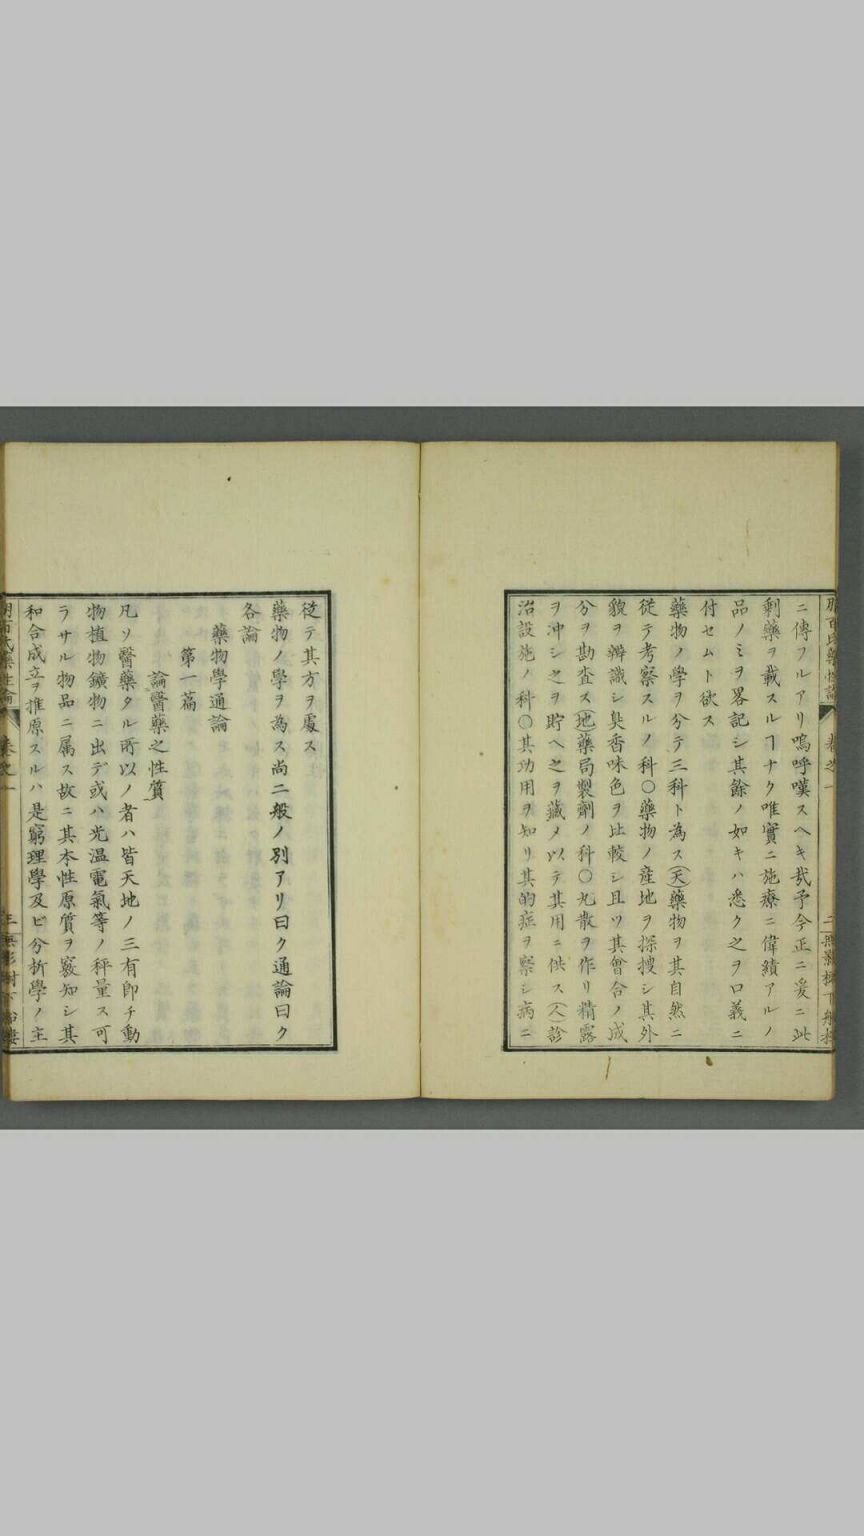 ニ傳フルアリ嗚呼嘆スヘキ哉予今正ニ爰ニ此
剰藥ヲ載スルヿナク唯實ニ施療ニ偉績アルノ
品ノミヲ畧記シ其餘ノ如キハ悉ク之ヲ口義ニ
付セムト欲ス
藥物ノ學ヲ分テ三科ト為ス(天)藥物ヲ其自然ニ
従テ考察スルノ科〇藥物ノ産地ヲ探捜シ其外
貌ヲ辨識シ臭香味色ヲ比較シ且ツ其會合ノ成
分ヲ勘査ス(地)藥局製劑ノ科〇丸散ヲ作リ精露
ヲ沖シ之ヲ貯ヘ之ヲ藏メ以テ其用ニ供ス(人)診
治設施ノ科〇其功用ヲ知リ其的症ヲ察シ病ニ
従テ其方ヲ處ス
藥物ノ學ヲ為ス尚二般ノ別アリ曰ク通論曰ク
各論
藥物學通論
第一篇
論醫藥之性質
凡ソ醫藥タル所以ノ者ハ皆天地ノ三有即チ動
物植物鑛物ニ出デ或ハ光温電氣等ノ秤量ス可
ラサル物品ニ属ス故ニ其本性原質ヲ竅知シ其
和合成立ヲ推原スルハ是窮理學及ビ分析學ノ主
卷之一